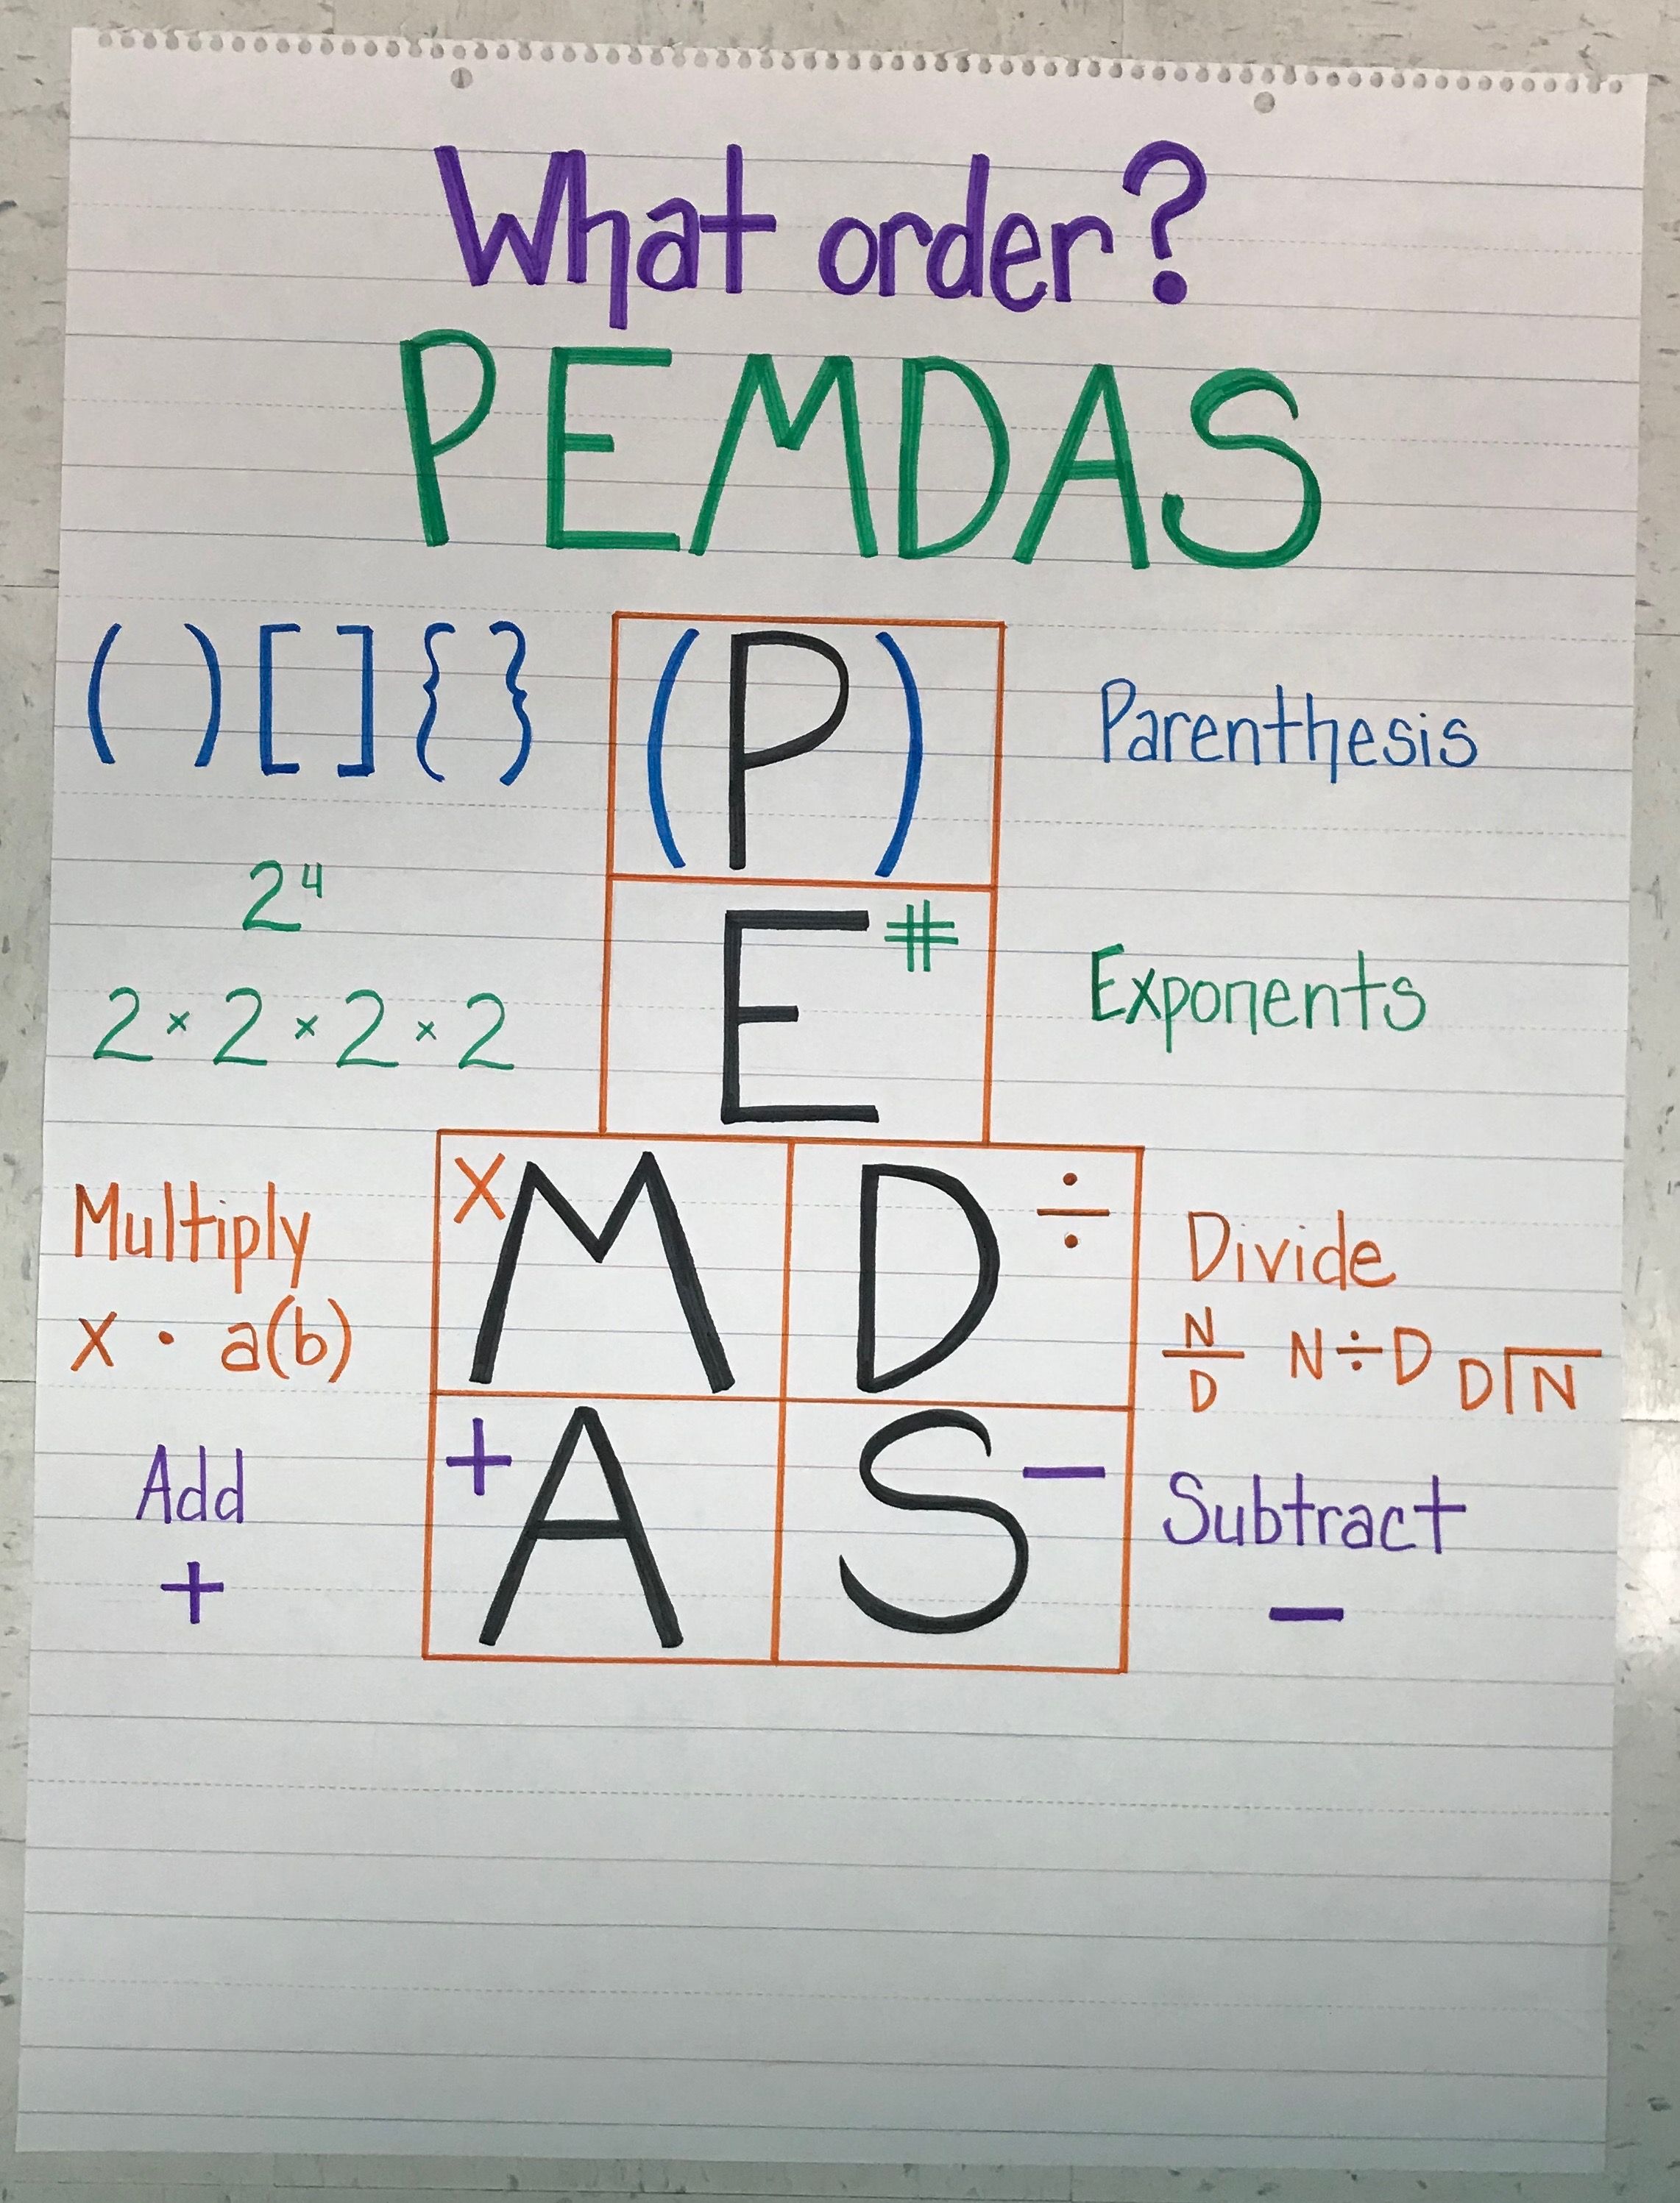 What order?
PEMDAS
( ) [ ] { } (P) Parenthesis
2⁴
E# Exponents
2 × 2 × 2 × 2
Multiply x M D ÷ Divide
x · a(b) N/D N÷D D⟌N
Add + A S − Subtract
+ −